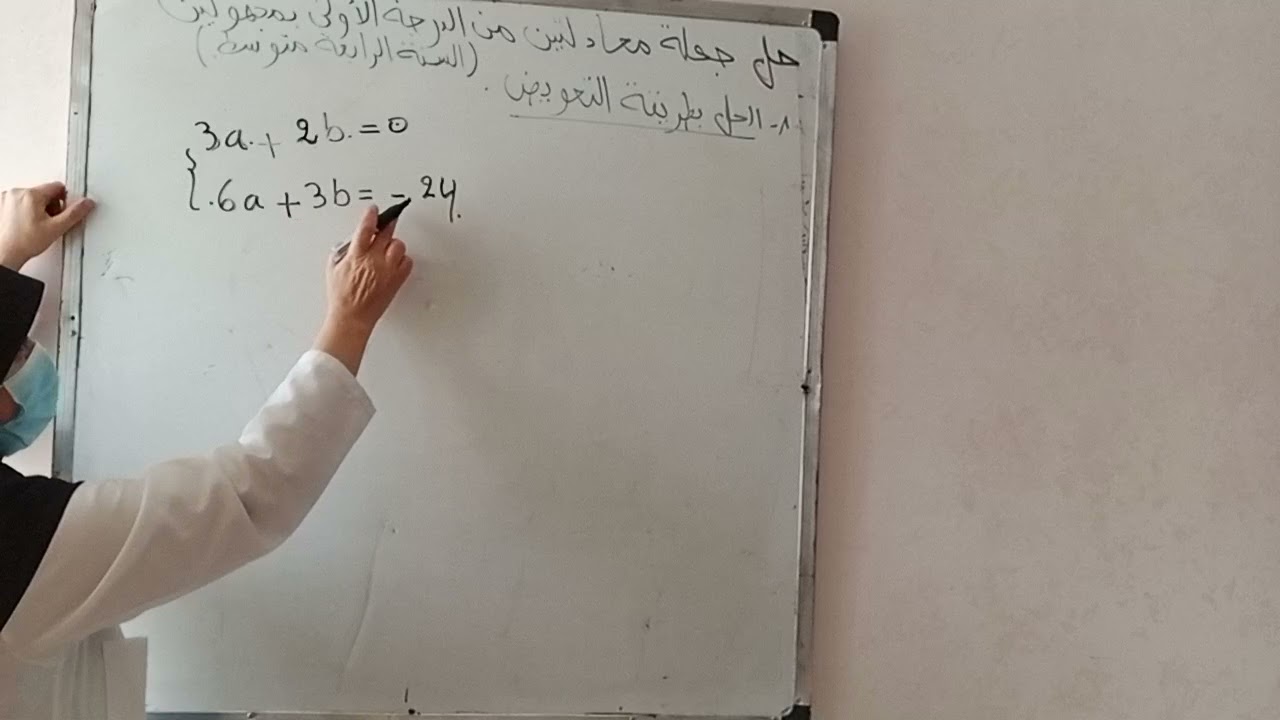 حل جملة معادلتين من الدرجة الأولى بمجهولين
(السنة الرابعة متوسط)
1- الحل بطريقة التعويض.
3a + 2b = 0
6a + 3b = - 24